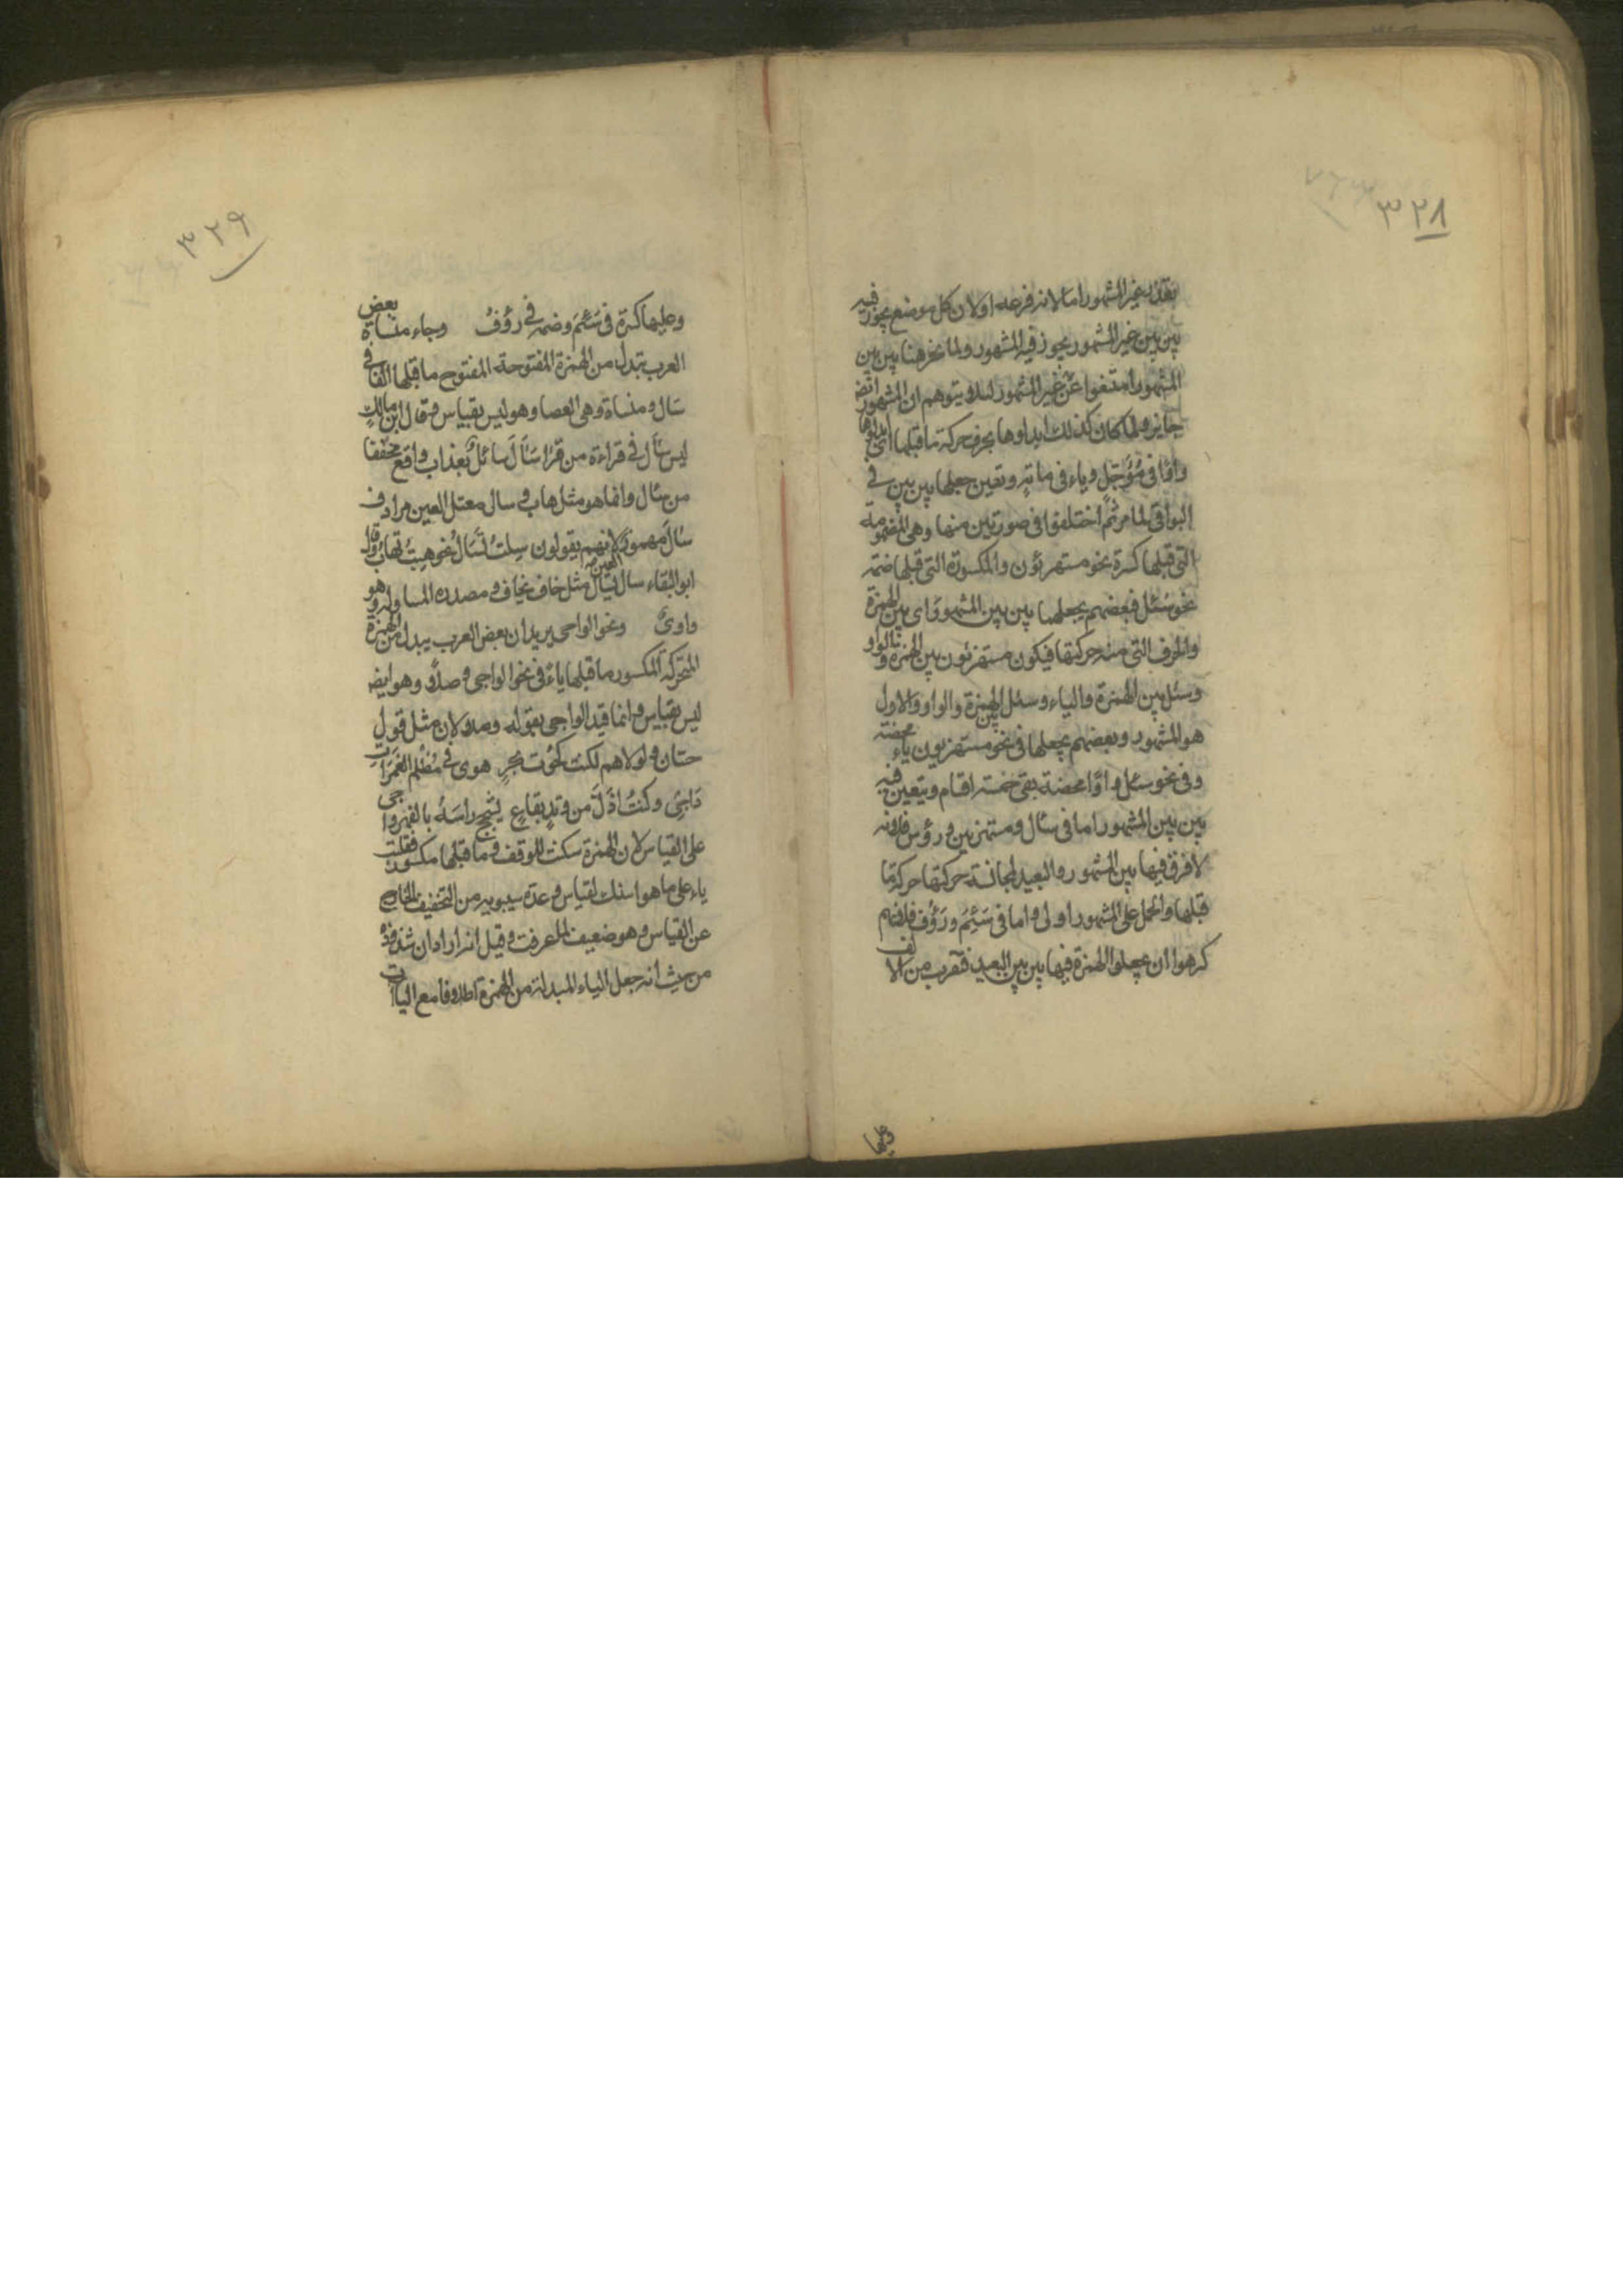 ٣٢٨
بتعذر غير المشهور اما لانه فرعه او لان كل موضع يجوز فيه
بين بين غير المشهور يجوز فيه المشهور ولما عز هنا بين بين
المشهور امتنعوا عن غير المشهور لئلا يتوهم ان المشهور ايض
جايز ولما كان كذلك ابداوها بحرف حركة ما قبلها اى ابداوها
واوًا فى مُؤَجّل وياء فى ماية وتعين جعلها بين بين فى
البواقى لما مر ثم اختلفوا فى صورتين منها وهى المضمومة
التى قبلها كسرة نحو مستهزؤن والمكسورة التى قبلها ضمة
نحو سُئل فبعضهم يجعلهما بين بين المشهور اى بين الهمزة
والحرف التى منه حركتها فيكون مستهزئون بين الهمزة والواو
وسئل بين الهمزة والياء وسئل بين الهمزة والواو والاول
هو المشهور وبعضهم يجعلها فى نحو مستهزيون ياء محضة
وفى نحو سئل واوًا محضة بقى خمسة اقسام ويتعين فيه
بين بين المشهور اما فى سئال ومستهزيين ورؤس فلانه
لا فرق فيها بين المشهور والبعيد لمجانسة حركتها حركة ما
قبلها والحمل على المشهور اولى واما فى سَئِمَ ورَؤُف فلانهم
كرهوا ان يجعلوا الهمزة فيها بين بين البعيد فتقرب من الالف
وعليها
٣٢٩
وعليها كسرة فى سَئِمَ وضمة فى رؤُفُ وجاء منساة بعض
العرب تبدل من الهمزة المفتوحة المفتوح ما قبلها الفا فى
سَال ومنساة وهى العصا وهو ليس بقياس وقال ابن مالك
ليس سَال فى قراءة من قرا سَاَلَ سائلٌ بعذاب واقع مخففا
من سئال وانما هو مثل هاب وسال معتل العين مرادف
سَاَلَ مهموز العين صح لانهم يقولون سِلتُ تَسَالُ نحو هِبتُ تهابُ وقال
ابو البقاء سال يَسَال مثل خاف يخاف ومصدره المساولة وهو
واوىّ ونحو الواجى يريد ان بعض العرب يبدل من الهمزة
المتحركة المكسور ما قبلها ياءً فى نحو الواجى وصلاً وهو ايض
ليس بقياس وانما قيد الواجى بقوله وصلا لان مثل قول
حسان ولولاهم لكنت كحُوت بحرٍ هوى فى مُظلم الغمَرَاتِ
دَاجِى وكنتُ اذلّ من وتدٍ بقاعٍ يُشجّج راسَهُ بالفهر واجى
على القياس لان الهمزة سكنت للوقف وما قبلها مكسور فقلبت
ياء على ما هو اسنك لقياس وعدّه سيبويه من التخفيف الخارج
عن القياس وهو ضعيف لما عرفت وقيل انه اراد ان شذوذه
من حيث انه جعل الياء المبدلة من الهمزة اطلاوفا مع اليآت